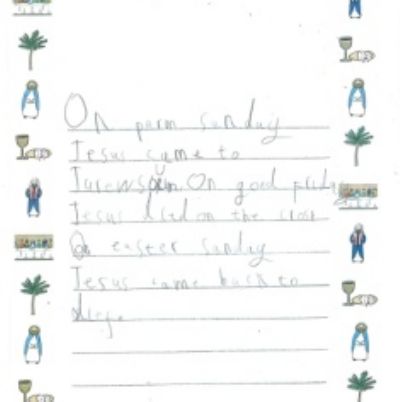 On parm Sunday
Jesus came to
On good friday
Jesus died on the cross
On easter Sunday
Jesus came back to